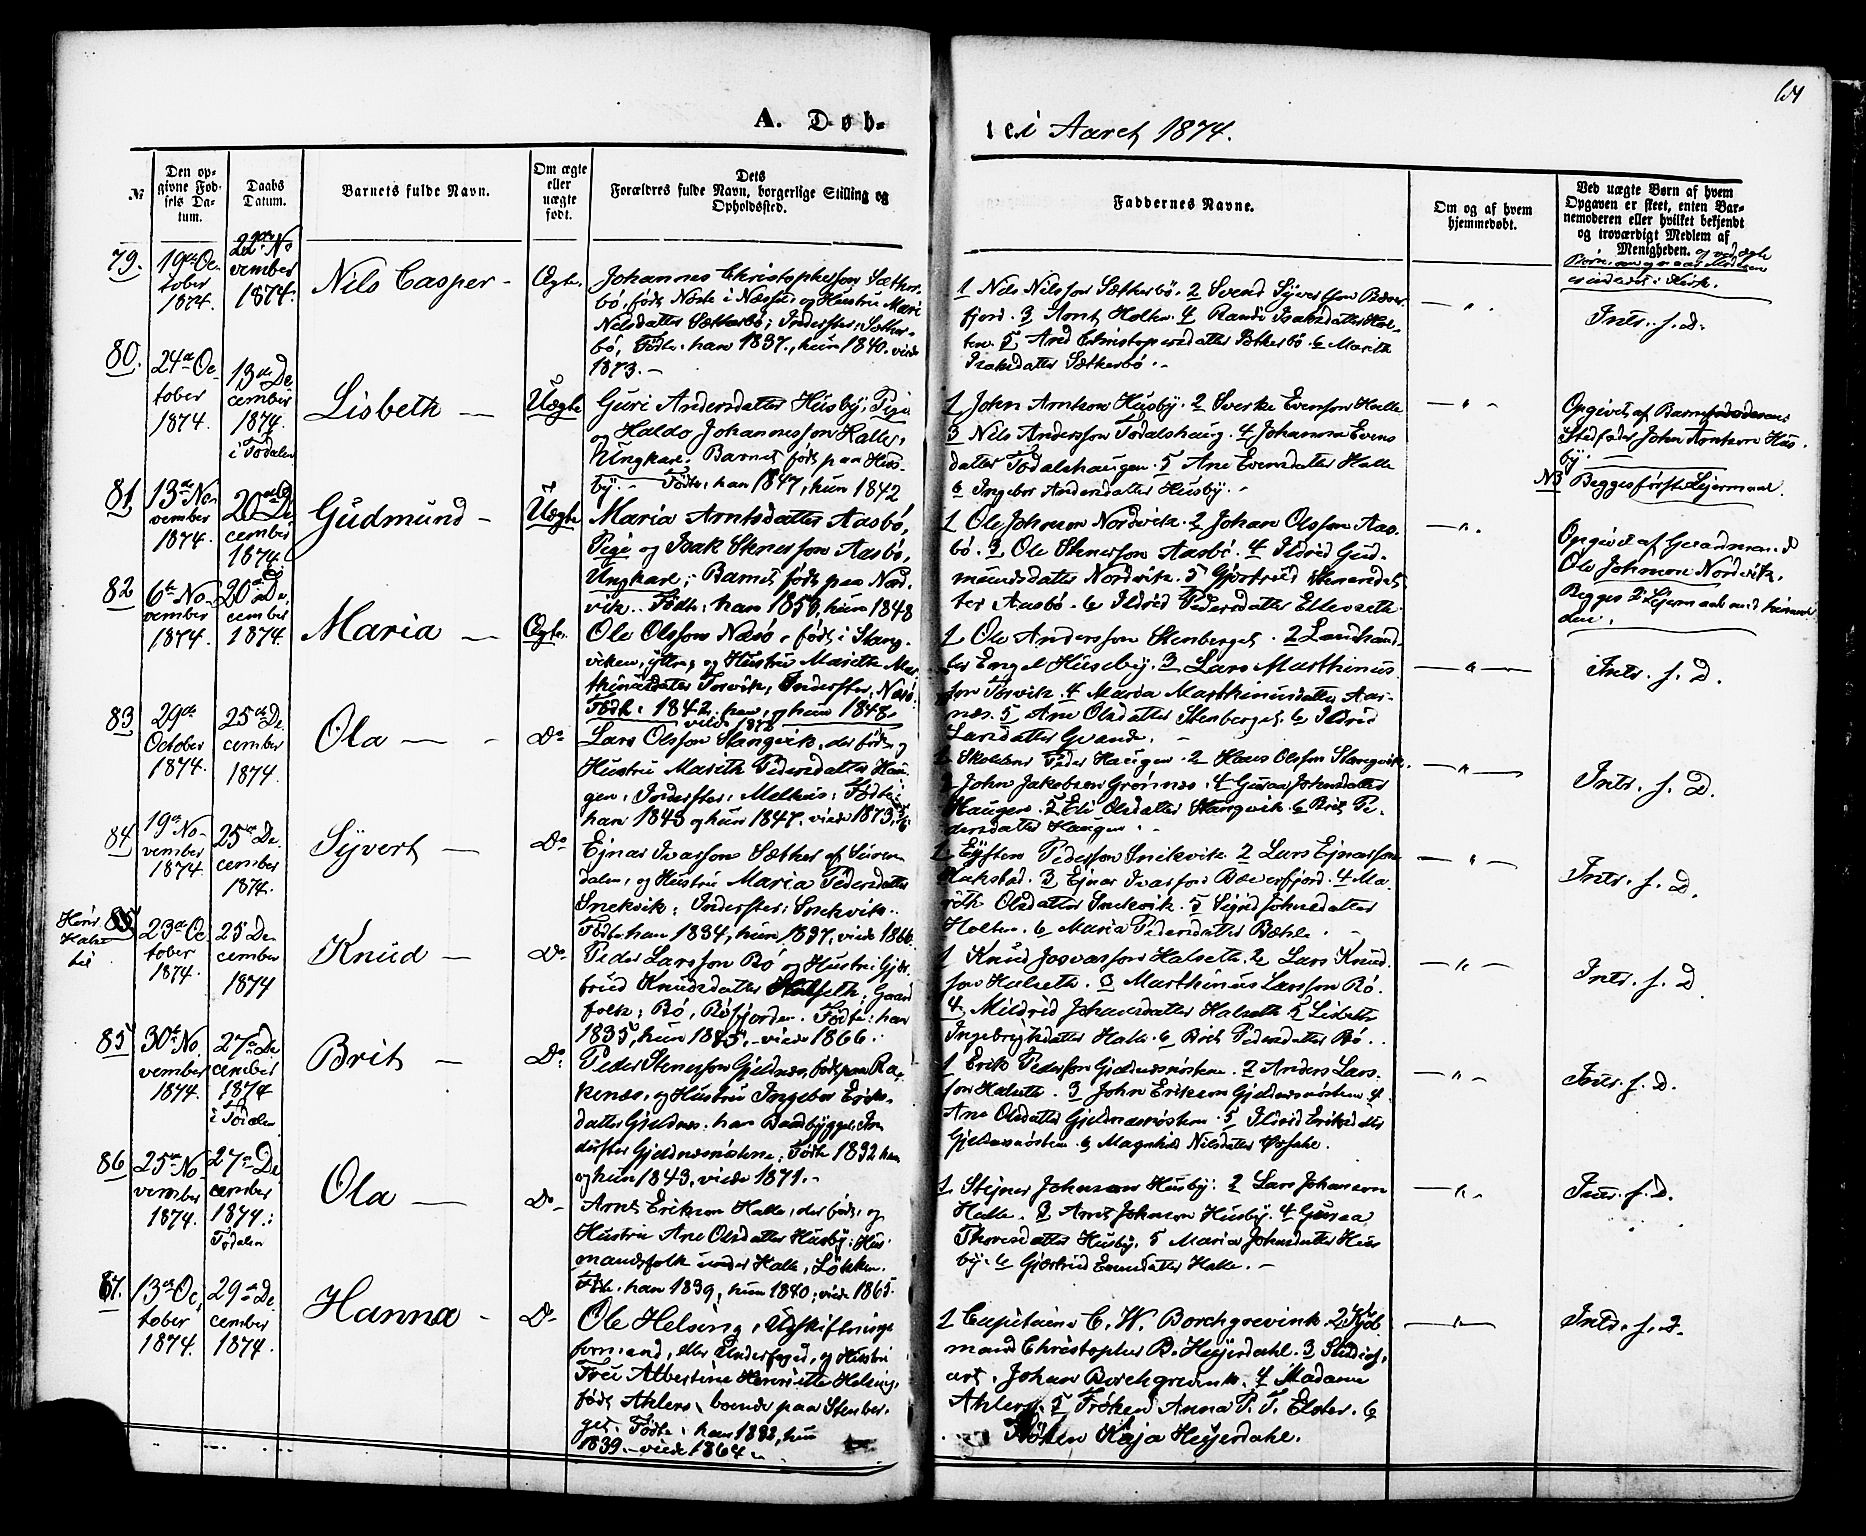 64
A. Døb-
te i Aaret 1874.
№
Den opgivne Fødsels Datum.
Daabs Datum.
Barnets fulde Navn.
Om ægte eller uægte født.
Dets Forældres fulde Navn, borgerlige Stilling og Opholdssted.
Faddernes Navne.
Om og af hvem hjemmedøbt.
Ved uægte Børn af hvem Opgaven er skeet, enten Barnemoderen eller hvilket bekjendt og troværdigt Medlem af Menigheden.
79.
19de Oc-
tober
1874.
22de No
vember
1874.
Nils Casper -
Ægte.
Johannes Christophersson Sæther-
bø, født Neste i Næsset og Hustru Mari
Nilsdatter Sætherbø; Inderster, Sæther-
bø, Fødte: han 1837, hun 1840. viede
1873. -
1 Nils Nilsson Sætherbø. 2 Svend Syvertson Bæver-
fjord. 3 Arnt Holten. 4 Randi Isaksdatter Hol-
ten. 5 Ane Christophersdatter Sætherbø. 6 Marith
Isaksdatter Sætherbø. -
Intr. f. D.
80.
24de Oc
tober
1874.
13de De
cember
1874.
i Todalen
Lisbeth -
Uægte
Guri Andersdatter Husby, Pige
og Haldo Johannesson Halle,
Ungkarl. Barnet født paa Hus-
by. - Fødte: han 1847, hun 1842
1 John Arntson Husby. 2 Sverke Evenson Halle
3 Nils Andersson Todalshaug. 4 Johanna Evens
datter Todalshaugen. 5 Ane Evensdatter Halle
6 Ingebor Andersdatter Husby. -
Opgivet af Barnefaderens
Stedfader John Arntson Hus
by.
NB Begges første Leiermaal.
81
13de No-
vember
1874.
20de De
cember
1874.
Gudmund -
Uægte
Maria Arntsdatter Aasbø,
Pige og Isak Stenersson Aasbø,
Ungkarl; Barnet født paa Nord-
vik. Fødte: han 1853, hun 1848
1 Ole Johnson Nordvik. 2 Johan Olsson Aas-
bø. 3 Ole Stenersson Aasbø. 4 Ildrid Gud-
mundsdatter Nordvik. 5 Gjertrud Stenersdat
ter Aasbø. 6 Ildrid Pedersdatter Ellevseth
Opgivet af Gaardmand
Ole Johnson Nordvik.
Begges 2t Leiermaal med hinan
den.
82
6te No-
vember
1874.
20de De
cember
1874.
Maria -
Ægte.
Ole Olsson Næsø, født i Stang-
viken, yttre, og Hustru Marith Mar-
thinusdatter Torvik; Inderster, Næsø.
Fødte: 1842 han, og hun 1848.
viede 1872
1 Ole Andersson Stenberget. 2 Landhand-
ler Engel Huseby. 3 Lars Marthinus
son Torvik. 4 Maria Marthinusdatter Aar-
næs. 5 Ane Olsdatter Stenberget. 6 Ildrid
Larsdatter Grande. -
Intr. f. D.
83
29de
October
1874.
25de De
cember
1874.
Ola -
Do
Lars Olsson Stangvik, der født, og
Hustru Marith Pedersdatter Hau-
gen, Inderster, Melhus; Fødte:
han 1843 og hun 1847. viede 1873.
1 Skolelærer Peder Haugen. 2 Hans Olsson Stangvik.
3 John Jakobsen Grønnes. 4 Guraa Johnsdatter
Haugen. 5 Eli Olsdatter Stangvik. 6 Brit Pe-
dersdatter Haugen. -
Intr. f. D.
84
19de No-
vember
1874.
25de De
cember
1874.
Syvert -
Do
Ejnar Ivarsson Sæther af Suren
dalen, og Hustru Maria Pedersdatter
Snekvik; Inderster; Snekvik.
Fødte: han 1834, hun 1837, viede 1866.
1 Eysten Pedersson Snekvik. 2 Lars Ejnarsson
Rakstad. 3 Ejnar Ivarson Bæverfjord. 4 Ma-
rith Olsdatter Snekvik. 5 Sigrid Johnsdatter
Holten. 6 Maria Pedersdatter Bæhle.
Intr. f. D.
85
23de Oc
tober
1874.
25 De
cember
1874
Knud -
Do
Peder Larsson Bø og Hustru Gjer-
trud Knudsdatter Halseth; Gaard
folk; Bø, Bøfjorden. Fødte: han
1835, hun 1845. - viede 1866.
1 Knud Josvarsson Halseth. 2 Lars Knud
son Halseth. 3 Marthinus Larsson Bø.
4 Mildrid Johnsdatter Halseth 5 Lisbeth
Ingebrigtsdatter Halle. 6 Brit Pedersdatter Bø.
Intr. f. D
85
30te No
vember
1874.
27de De
cember
1874
i Todalen
Brit -
Do
Peder Stenersson Gjeldnæs, født paa Ra-
kenæs, og Hustru Ingebor Eriks-
datter Gjeldnæs. han Baadbygger. In
derster Gjeldnæsnøstene; Fødte 1832 han
og hun 1843, viede 1871. -
1 Erik Pedersson Gjeldnæsnøsten. 2 Anders Lars-
son Halseth. 3 John Eriksson Gjeldnæsnøsten 4
Ane Olsdatter Gjeldnæsnøsten. 5 Ildrid Eriksdatter
Gjeldnæsnøsten. 6 Magnhild Nilsdatter
Intr. f. D.
86
25de No
vember
1874.
27de De
cember
1874.
Todalen
Ola -
Do
Arnt Erikson Halle, der født, og
Hustru Ane Olsdatter Husby. Hus-
mandsfolk under Halle, Løkken.
Fødte: han 1839, hun 1840; viede 1865.
1 Stejner Johnson Husby. 2 Lars Johanson
Halle. 3 Arnt Johnson Husby. 4 Guraa
Thoresdatter Husby. 5 Maria Johnsdatter Hus
by. 6 Gjertrud Evensdatter Halle. -
Intr. f. D.
87.
13de Oc
tober
1874.
29de De
cember
1874.
Hanna -
Do
Ole Helsing, Udskiftnings
formand, eller Underfoged, og Hustru
Fru Albertine Henriette Helsing,
født Ahlers, boende paa Stenber-
get. Fødte: han 1832, hun
1839. - viede 1864.
1 Capitaine C. W. Borchgrevink 2 Kjøb-
mand Christopher B. Heyerdahl. 3 Studios.
art. Johan Borchgrevink. 4 Madame
Ahlers. 5 Frøken Anna P. T. Elster. 6
Frøken Kaja Heyerdahl.
Intr. f. D.